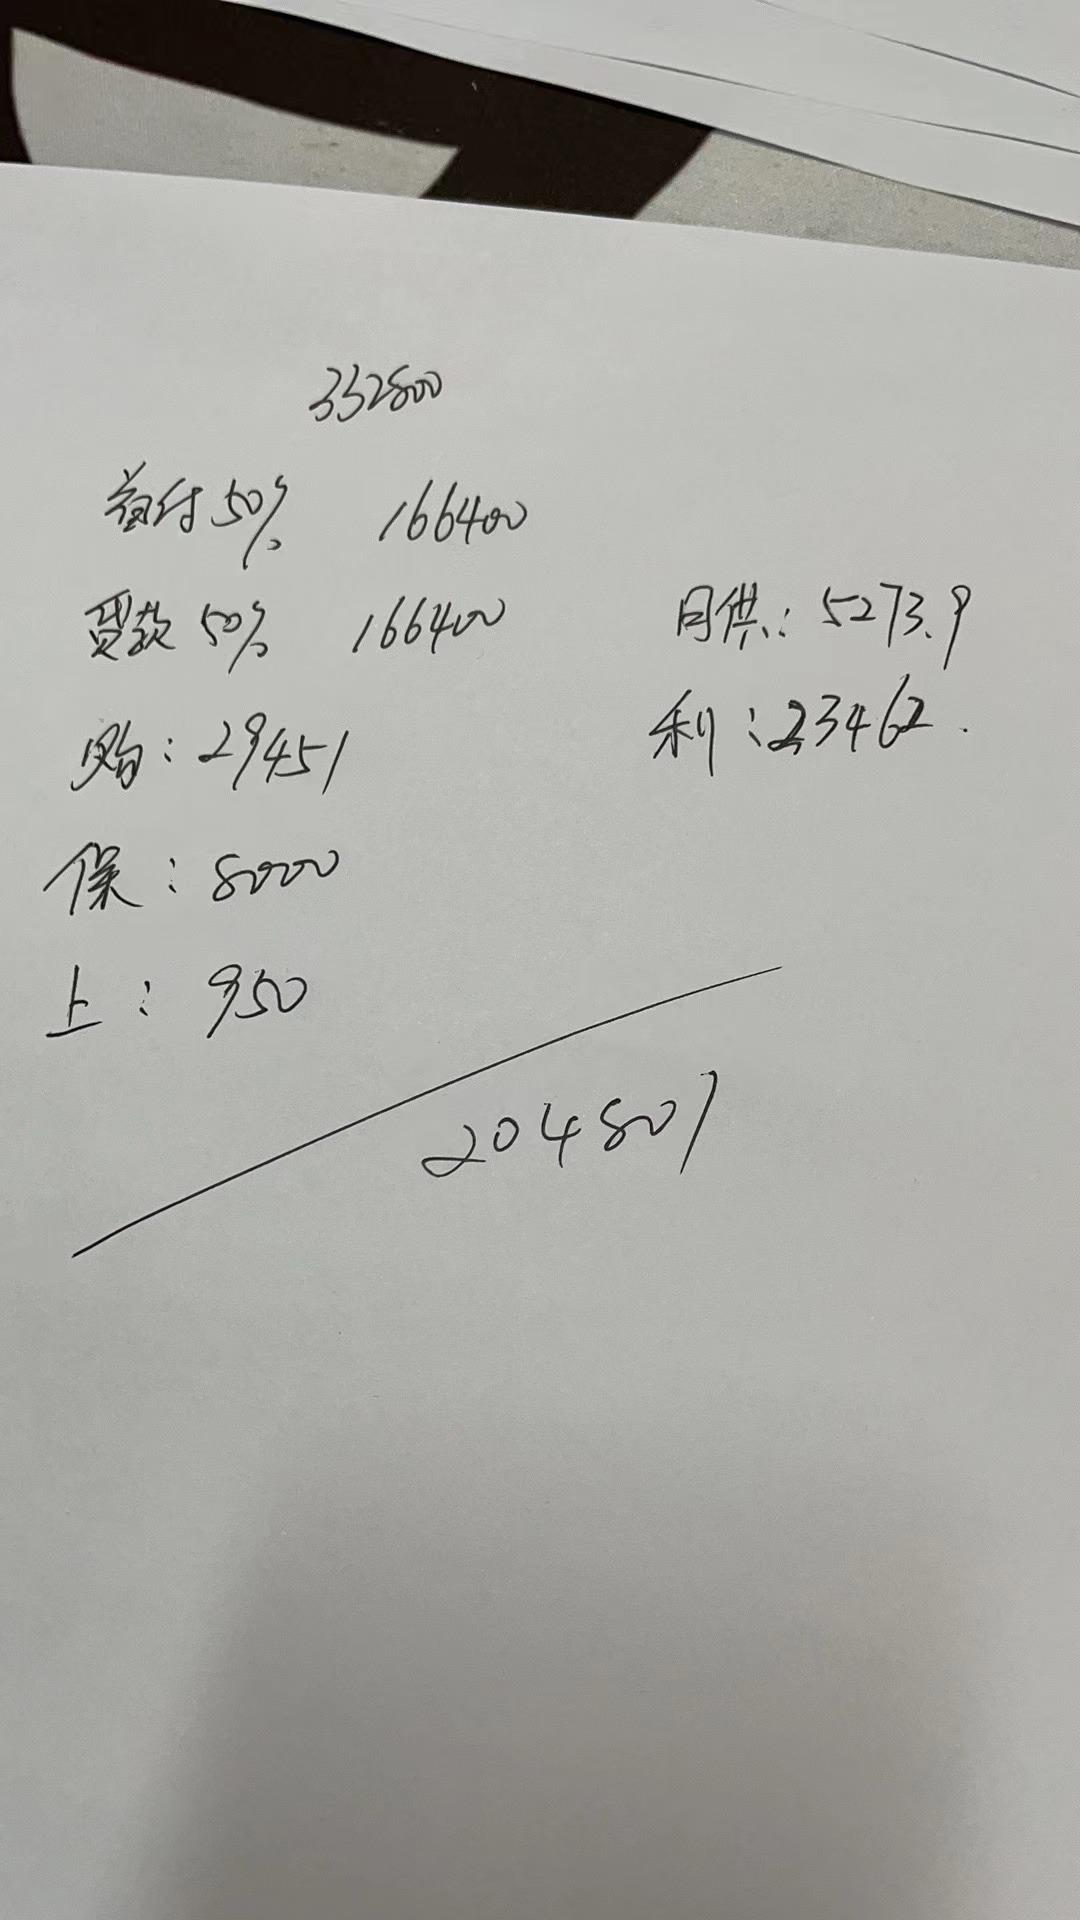 332800
首付50% 166400
贷款50% 166400
月供:5273.9
利:23462.
购:29451
保:8000
上:950
204801